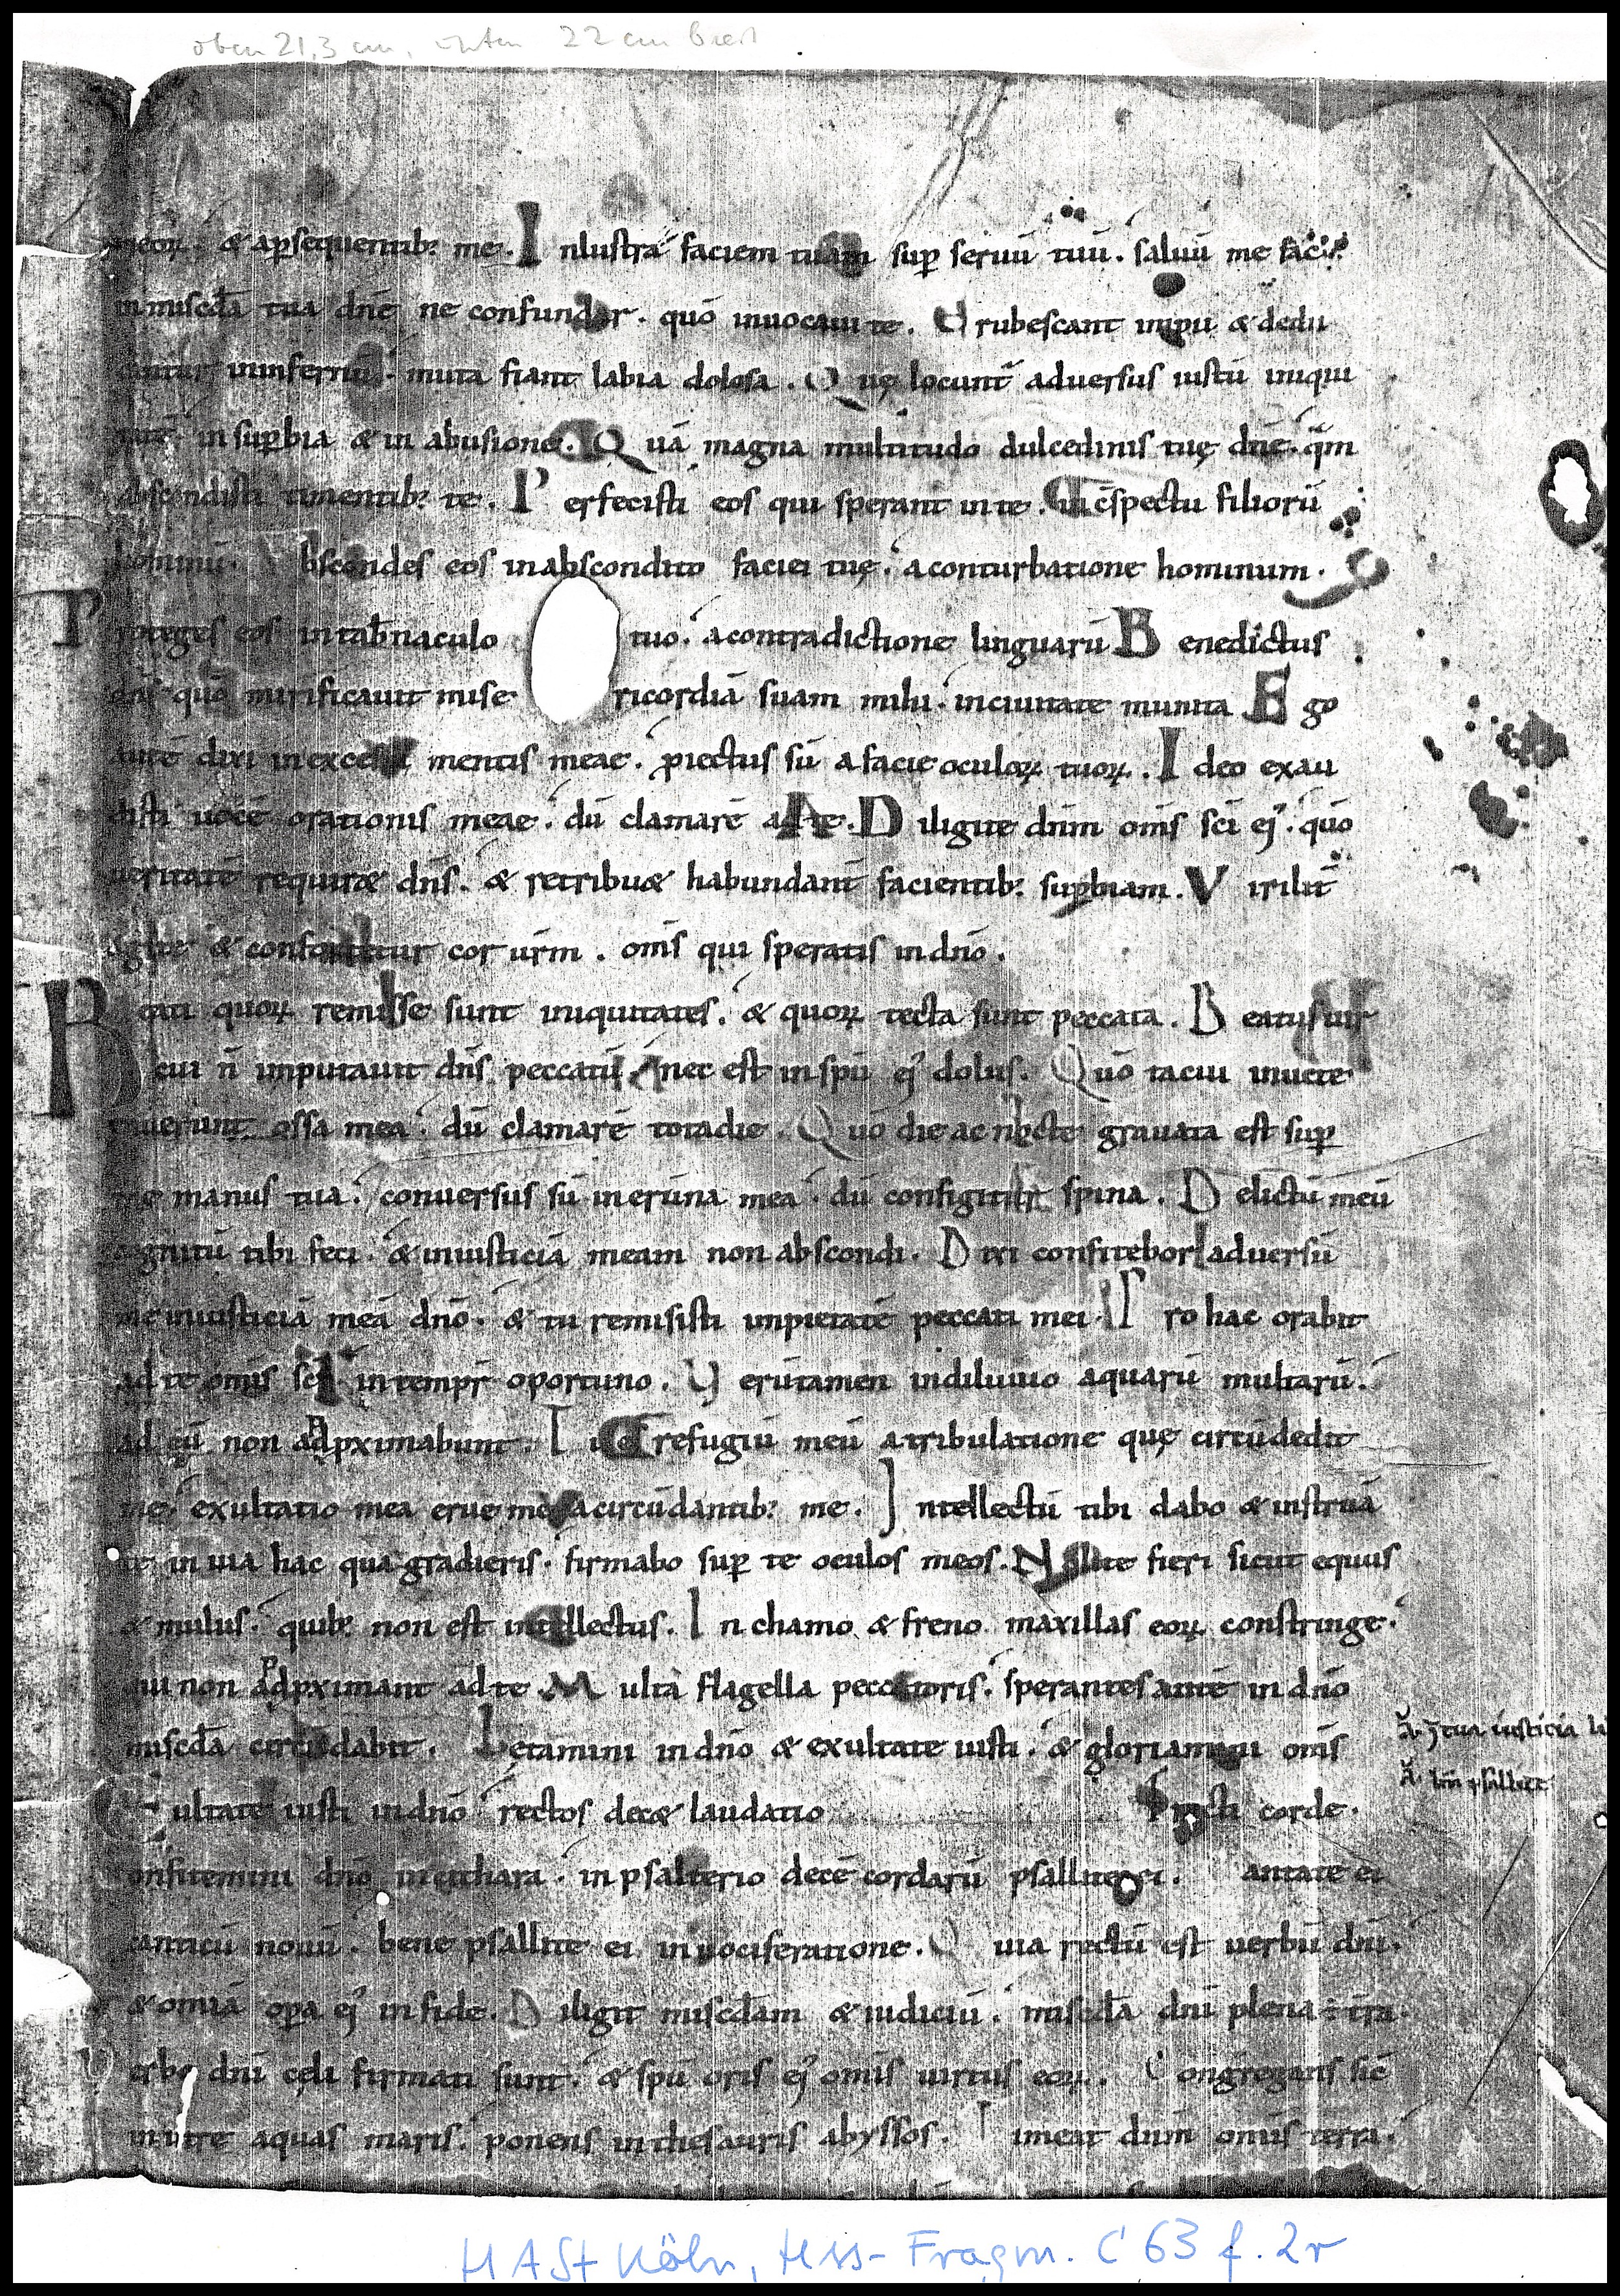 oben 21,3 cm, unten 22 cm breit
meoꝝ · & apsequentib: me. Inlustra faciem tuam sup seruū tuū. saluū me fac
in miscd̄a tua dn̄e ne confundar. quō inuocaui te. Erubescant impii & dedu
cantur in infernū. muta fiant labia dolosa. Quę locunt̄ aduersus iustū iniqui
tatē in supbia & in abusione. Quā magna multitudo dulcedinis tuę dn̄e. qm̄
abscondisti timentib: te. Perfecisti eos qui sperant in te. in c̄spectu filiorū
hominū. Abscondes eos in abscondito faciei tuę. a conturbatione hominum.
Proteges eos in tab̄naculo tuo. a contradictione linguarū Benedictus
dn̄s quō mirificauit misericordiā suam mihi. in ciuitate munita Ego
autē dixi in excessu mentis meae. piectus sū a facie oculoꝝ tuoꝝ. Ideo exau
disti uocē orationis meae. dū clamarē ad te. Diligite dn̄m om̄s sc̄i ej. quō
ueritatē requir& dn̄s. & retribu& habundant̄ facientib: supbiam. Virilit̄
agite & confortetur cor ur̄m. om̄s qui speratis in dn̄o.
Beati quoꝝ remisse sunt iniquitates. & quoꝝ tecta sunt peccata. Beatus uir
cui n̄ imputauit dn̄s peccatū nec est in spū ej dolus. Quō tacui inuete
rauerunt ossa mea. dū clamarē tota die. Quō die ac nocte grauata est sup
me manus tua. conuersus sū in erūna mea. dū configitur spina. Delictū meū
cognitū tibi feci. & iniusticiā meam non abscondi. Dixi confitebor aduersū
me iniusticiā meā dn̄o. & tu remisisti impietatē peccati mei. Pro hac orabit
ad te omīs sc̄s in tempr̄ oportuno. Verūtamen in diluuio aquarū multarū.
ad eū non adpximabunt. Tu es refugiū meū a tribulatione quę circūdedit
me. exultatio mea erue me a circūdantib: me. Intellectū tibi dabo & instruā
te in uia hac qua gradieris. firmabo sup te oculos meos. Nolite fieri sicut equus
& mulus. quib: non est intellectus. In chamo & freno maxillas eoꝝ constringe.
qui non adpximant ad te Multa flagella peccatoris. sperantes autē in dn̄o
miscd̄a circūdabit. Letamini in dn̄o & exultate iusti. & gloriamini om̄s
recti corde.
Exultate iusti in dn̄o rectos dec& laudatio
ā. ī tua iusticia li
ā. psallite
Confitemini dn̄o in cithara. in psalterio decē cordarū psallite ei. antate ei
canticū nouū. bene psallite ei in uociferatione. Quia rectū est uerbū dn̄i.
& omīa opa ej in fide. Diligit miscd̄am & iudiciū. miscd̄a dn̄i plena ÷ tr̄a.
Verbo dn̄i cęli firmati sunt. & spū oris ej omīs uirtus eoꝝ. Congregans sic̄
in utre aquas maris. ponens in thesauris abyssos. Timeat dn̄m omīs terra.
HASt Köln, Hss-Fragm. C 63 f. 2r